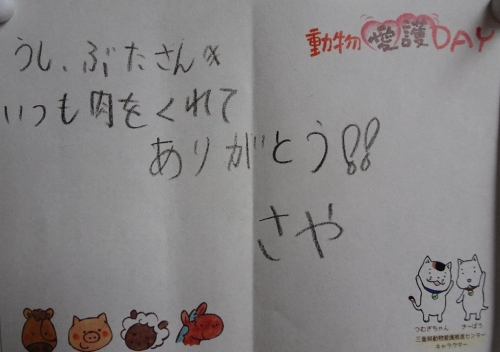 動物愛護DAY
うし、ぶたさん
いつも肉をくれて
ありがとう!!
さや
つむぎちゃん
さーぼう
三重県動物愛護推進センター
キャラクター